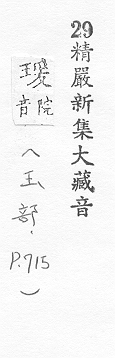 29精嚴新集大藏音
瑗院音(玉部.P.715)